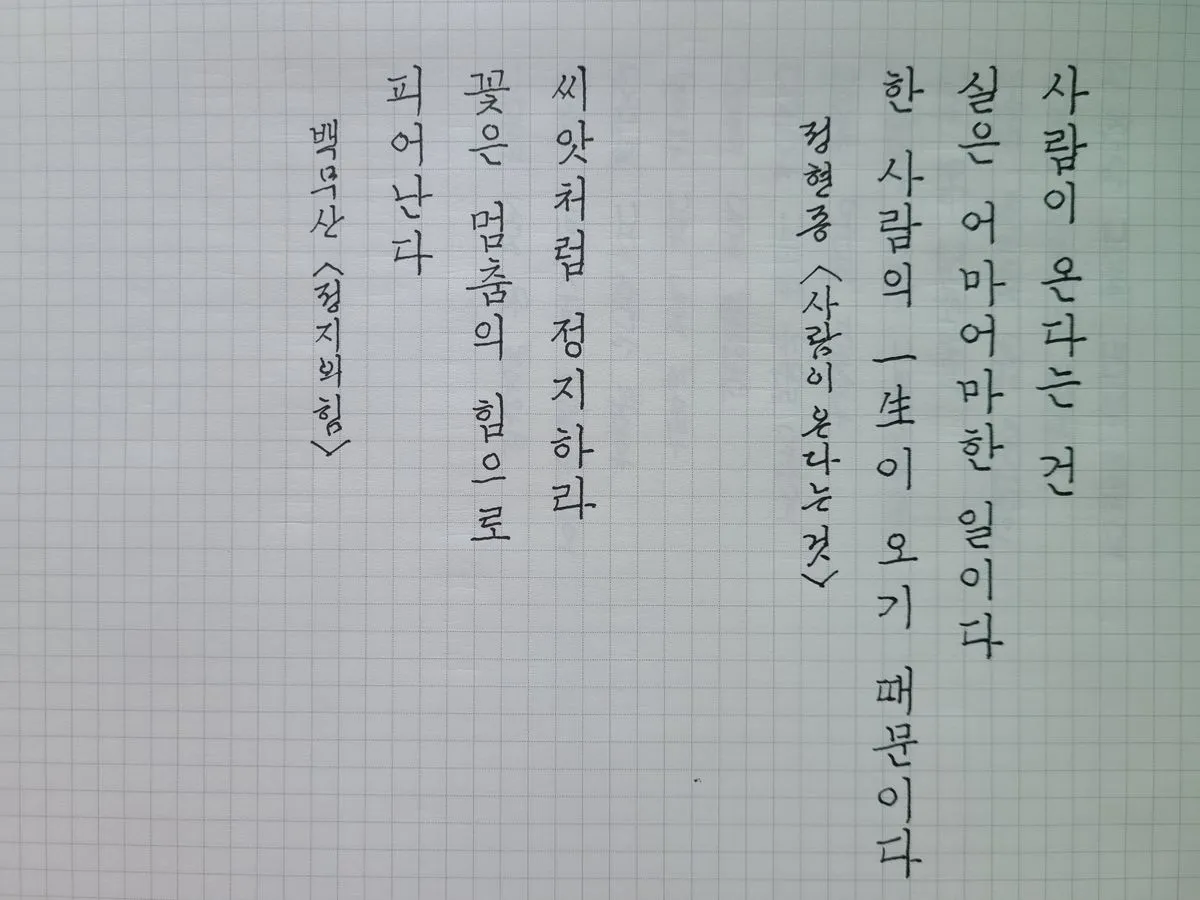 사람이 온다는 건
실은 어마어마한 일이다
한 사람의 一生이 오기 때문이다
정현종 <사람이 온다는 것>
씨앗처럼 정지하라
꽃은 멈춤의 힘으로
피어난다
백무산 <정지의 힘>